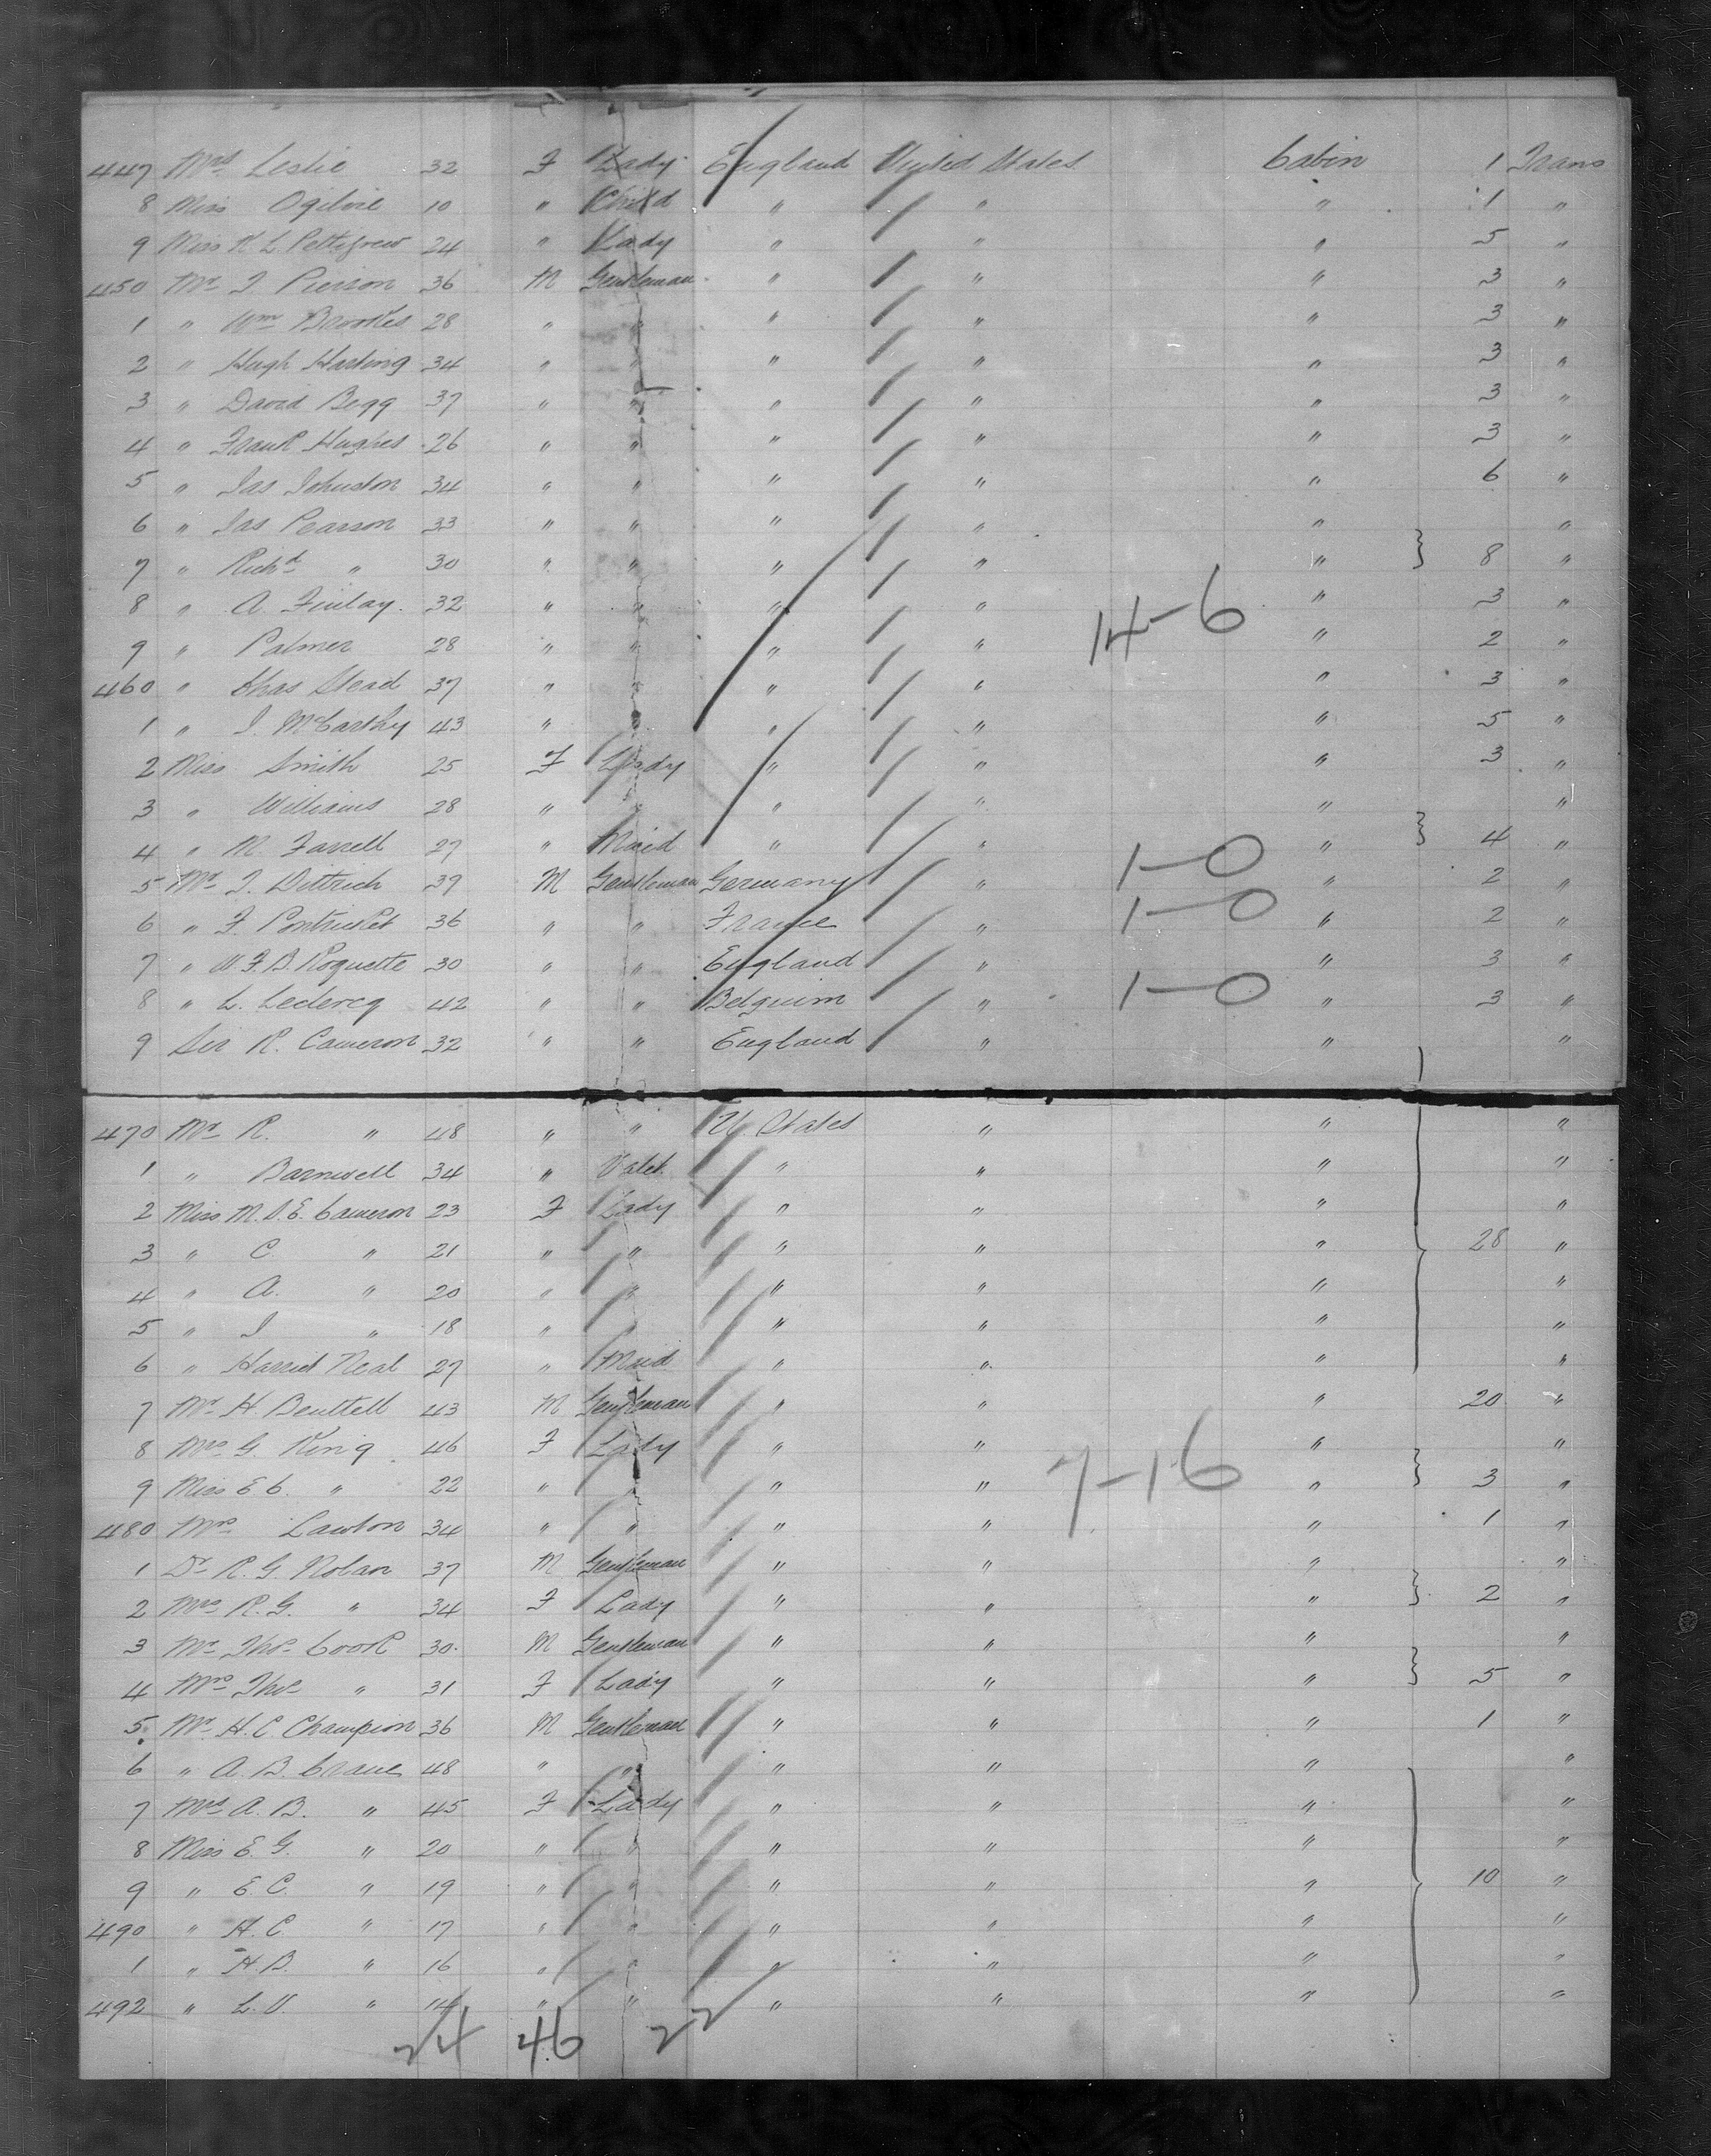 447 Mrs Leslie 32 F Lady England United States Cabin 1 Trans
8 Miss Ogilvie 10 " Child " " " 1 "
9 Miss K. L. Pettigrew 24 " Lady " " " 5 "
450 Mr J. Pierson 36 M Gentleman " " " 3 "
1 " Wm Brookes 28 " " " " " 3 "
2 " Hugh Harting 34 " " " " " 3 "
3 " David Begg 37 " " " " " 3 "
4 " Frank Hughes 26 " " " " " 3 "
5 " Jas Johnston 34 " " " " " 6 "
6 " Jas Pearson 33 " " " " " "
7 " Richd " 30 " " " " " } 8 "
8 " A. Finlay. 32 " " " " " 3 "
14-6
9 " Palmer 28 " " " " " 2 "
460 " Chas Stead 37 " " " " " 3 "
1 " J. McCarthy 43 " " " " " 5 "
2 Miss Smith 25 F Lady " " " 3 "
3 " Williams 28 " " " " " "
4 " M. Farrell 27 " Maid " " " } 4 "
5 Mr J. Dittrich 39 M Gentleman Germany " 1-0 " 2 "
6 " F. 36 " " France " 1-0 " 2 "
7 " W. F. B. Roguette 30 " " England " " 3 "
8 " L. Leclercq 42 " " Belguim " 1-0 " 3 "
9 Sir R. Cameron 32 " " England " " "
470 Mr R. " 48 " " U. States " " "
1 " Barnwell 34 " Valet " " " "
2 Miss M. S. E. Cameron 23 F Lady " " " "
3 " C. " 21 " " " " " } 28 "
4 " A. " 20 " " " " " "
5 " J " 18 " " " " " "
6 " Harriet Neal 27 " Maid " " " "
7 Mr H. Benttell 43 M Gentleman " " " 20 "
8 Mrs G. King 46 F Lady " " " "
9 Miss E. C. " 22 " " " " 7-16 " } 3 "
480 Mrs Lawton 34 " " " " " 1 "
1 Dr R. G. Nolan 37 M Gentleman " " " "
2 Mrs R. G. " 34 F Lady " " " } 2 "
3 Mr Thos Cook 30. M Gentleman " " " "
4 Mrs Thos " 31 F Lady " " " } 5 "
5. Mr. H. C. Champion 36 M Gentleman " " " 1 "
6 " A. B. Crane 48 " " " " " "
7 Mrs A. B. " 45 F Lady " " " "
8 Miss E. G. " 20 " " " " " "
9 " E. C. " 19 " " " " " } 10 "
490 " H. C. " 17 " " " " " "
1 " H. B. " 16 " " " " " "
492 " L. V. " 14 " " " " " "
24 46 22